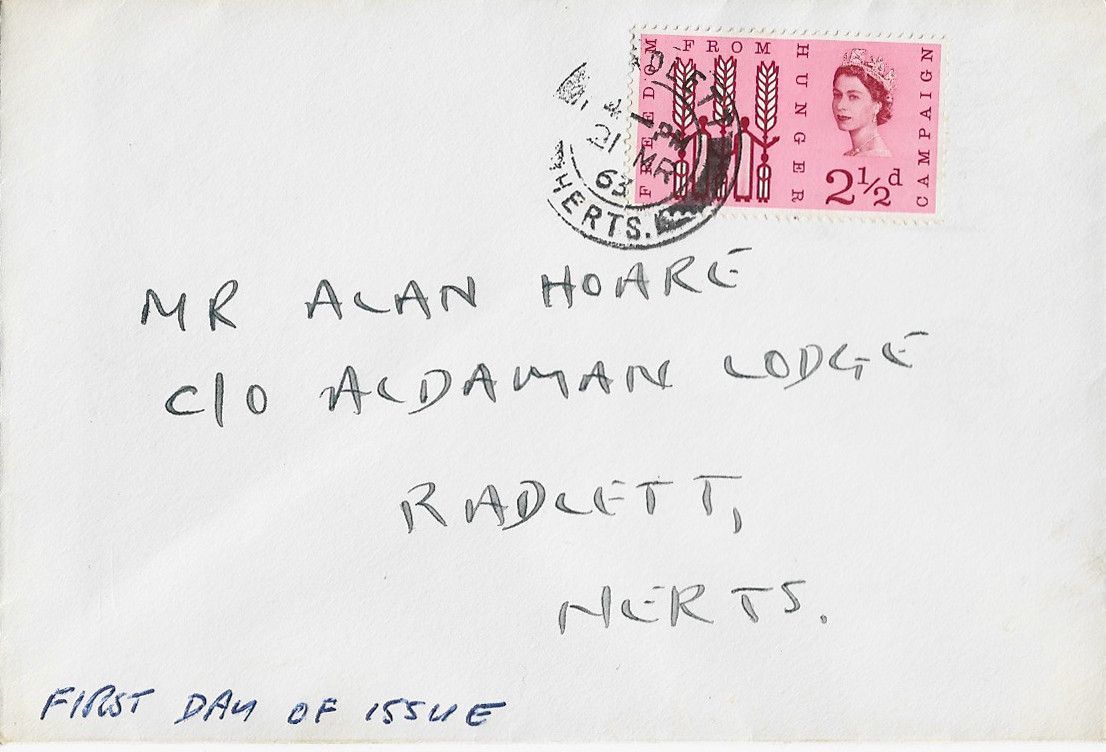 FREEDOM FROM HUNGER CAMPAIGN
2½d
RADLETT
4-PM
21 MR
63
HERTS.
MR ALAN HOARE
C/O ALDAMAN LODGE
RADLETT,
HERTS.
FIRST DAY OF ISSUE